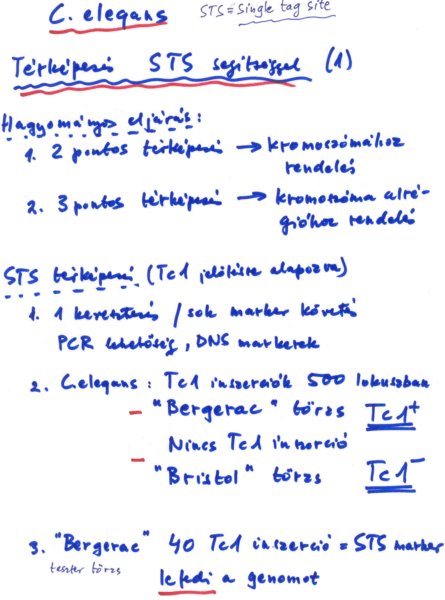 C. elegans STS = Single tag site
Térképezés STS segítséggel (1)
Hagyományos eljárás:
1. 2 pontos térképezés → kromoszómához
rendelés
2. 3 pontos térképezés → kromoszóma alré-
gióhoz rendelés
STS térképezés (Tc1 jelölésre alapozva)
1. 1 keresztezés / sok marker követés
PCR lehetőség, DNS markerek
2. C.elegans : Tc1 inszerciók 500 lokuszban
- "Bergerac" törzs Tc1+
Nincs Tc1 inszerció
- "Bristol" törzs Tc1-
3. "Bergerac" 40 Tc1 inszerció = STS marker
teszter törzs
lefedi a genomot